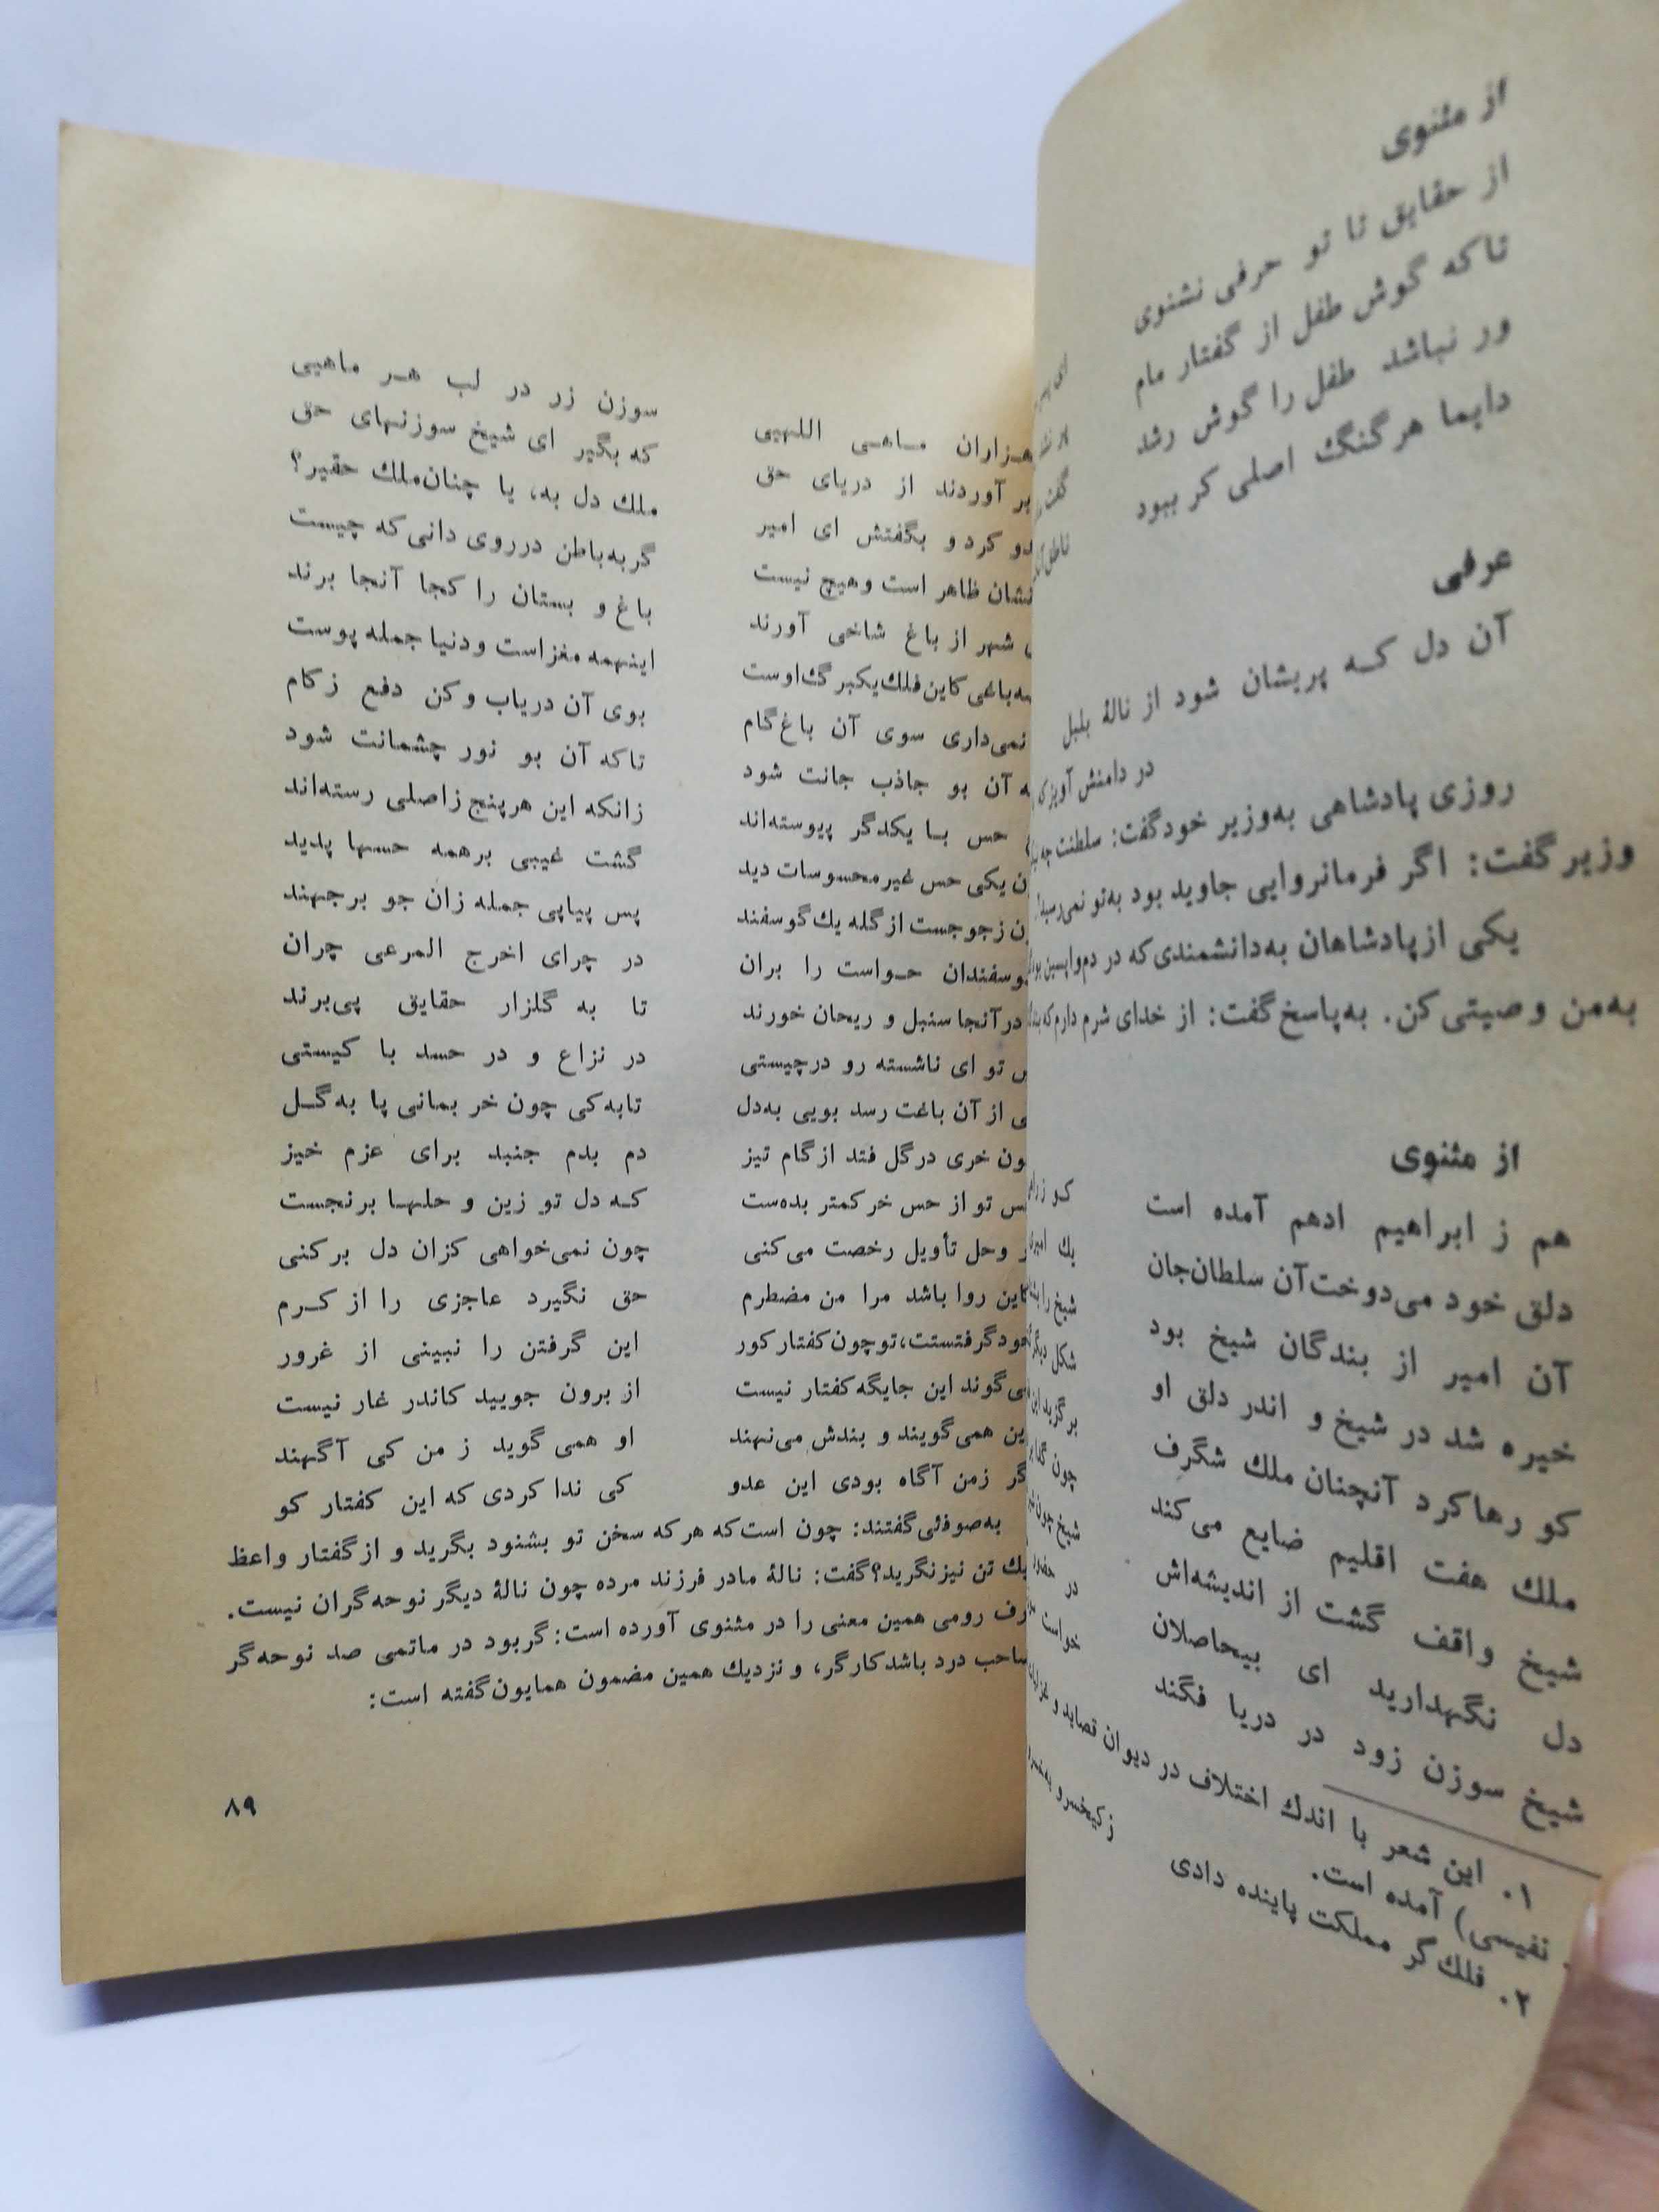 از مثنوی
از حقایق تا تو حرفی نشنوی
تا که گوش طفل از گفتار مام
ور نباشد طفل را گوش رشد
دایما هر گنگ اصلی کر ببود
عرفی
آن دل که پریشان شود از نالهٔ بلبل
در دامنش آویز که
روزی پادشاهی به‌وزیر خود گفت: سلطنت چه
وزیر گفت: اگر فرمانروایی جاوید بود به‌تو نمی‌رسید
یکی از پادشاهان به‌دانشمندی که در دم واپسین بود
به‌من وصیتی کن. به‌پاسخ گفت: از خدای شرم دارم که
از مثنوی
هم ز ابراهیم ادهم آمده است
دلق خود می‌دوخت آن سلطان جان
آن امیر از بندگان شیخ بود
خیره شد در شیخ و اندر دلق او
کو رها کرد آنچنان ملک شگرف
ملک هفت اقلیم ضایع می‌کند
شیخ واقف گشت از اندیشه‌اش
دل نگهدارید ای بیحاصلان
شیخ سوزن زود در دریا فگند
۱. این شعر با اندک اختلاف در دیوان قصاید و
نفیسی) آمده است.
۲. فلک گر مملکت پاینده دادی ز کیخسرو
هزاران ماهی اللهیی سوزن زر در لب هر ماهیی
بر آوردند از دریای حق که بگیر ای شیخ سوزنهای حق
کرد و بگفتش ای امیر ملک دل به، یا چنان ملک حقیر؟
نشان ظاهر است و هیچ نیست گر به‌باطن در روی دانی که چیست
شهر از باغ شاخی آورند باغ و بستان را کجا آنجا برند
باغی کاین فلک یکبرگ اوست اینهمه مغز است و دنیا جمله پوست
نمی‌داری سوی آن باغ گام بوی آن دریاب و کن دفع زکام
آن بو جاذب جانت شود تا که آن بو نور چشمانت شود
حس با یکدگر پیوسته‌اند زانکه این هر پنج ز اصلی رسته‌اند
یکی حس غیر محسوسات دید گشت غیبی بر همه حسها پدید
ز جو جست از گله یک گوسفند پس پیاپی جمله زان جو بر جهند
حواست را بران در چرای اخرج المرعی چران
در آنجا سنبل و ریحان خورند تا به گلزار حقایق پی‌برند
تو ای ناشسته رو در چیستی در نزاع و در حسد با کیستی
از آن باغت رسد بویی به‌دل تا به‌کی چون خر بمانی پا به‌گل
خری در گل فتد از گام تیز دم بدم جنبد برای عزم خیز
تو از حس خر کمتر بده‌ست که دل تو زین و حلها بر نجست
وحل تأویل رخصت می‌کنی چون نمی‌خواهی کزان دل بر کنی
کاین روا باشد مرا من مضطرم حق نگیرد عاجزی را از کرم
گرفتستت، تو چون کفتار کور این گرفتن را نبینی از غرور
گوند این جایگه کفتار نیست از برون جویید کاندر غار نیست
این همی گویند و بندش می‌نهند او همی گوید ز من کی آگهند
گر ز من آگاه بودی این عدو کی ندا کردی که این کفتار کو
به‌صوفئی گفتند: چون است که هر که سخن تو بشنود بگرید و از گفتار واعظ
یک تن نیز نگرید؟ گفت: نالهٔ مادر فرزند مرده چون نالهٔ دیگر نوحه گران نیست.
رومی همین معنی را در مثنوی آورده است: گر بود در ماتمی صد نوحه گر
صاحب درد باشد کارگر، و نزدیک همین مضمون همایون گفته است:
۸۹